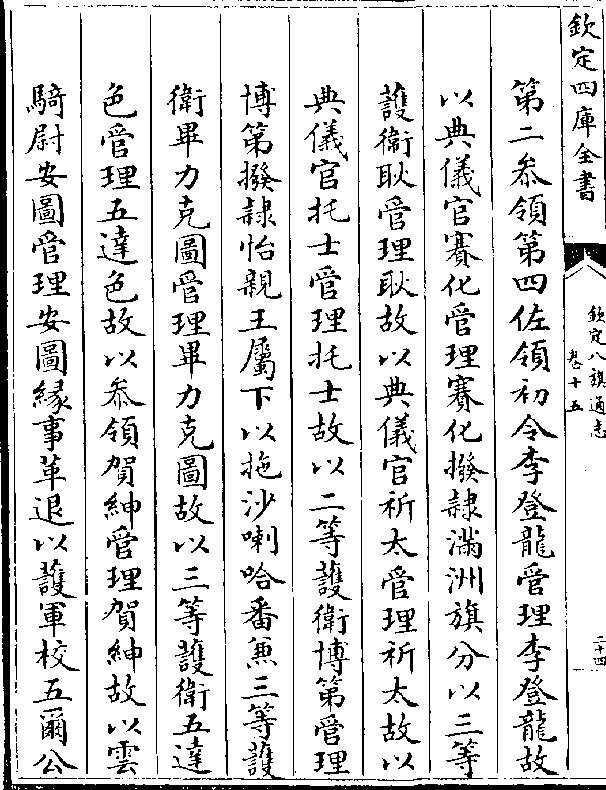 欽定四庫全書
欽定八旗通志
卷十五
二十四
第二叅領第四佐領初令李登龍管理李登龍故
以典儀官賽化管理賽化撥隷滿洲旗分以三等
護衛耿管理耿故以典儀官祈太管理祈太故以
典儀官托士管理托士故以二等護衛博第管理
博第撥隷怡親王屬下以拖沙喇哈番兼三等護
衛畢力克圖管理畢力克圖故以三等護衛五達
色管理五達色故以叅領賀紳管理賀紳故以雲
騎尉安圖管理安圖縁事革退以護軍校五爾公